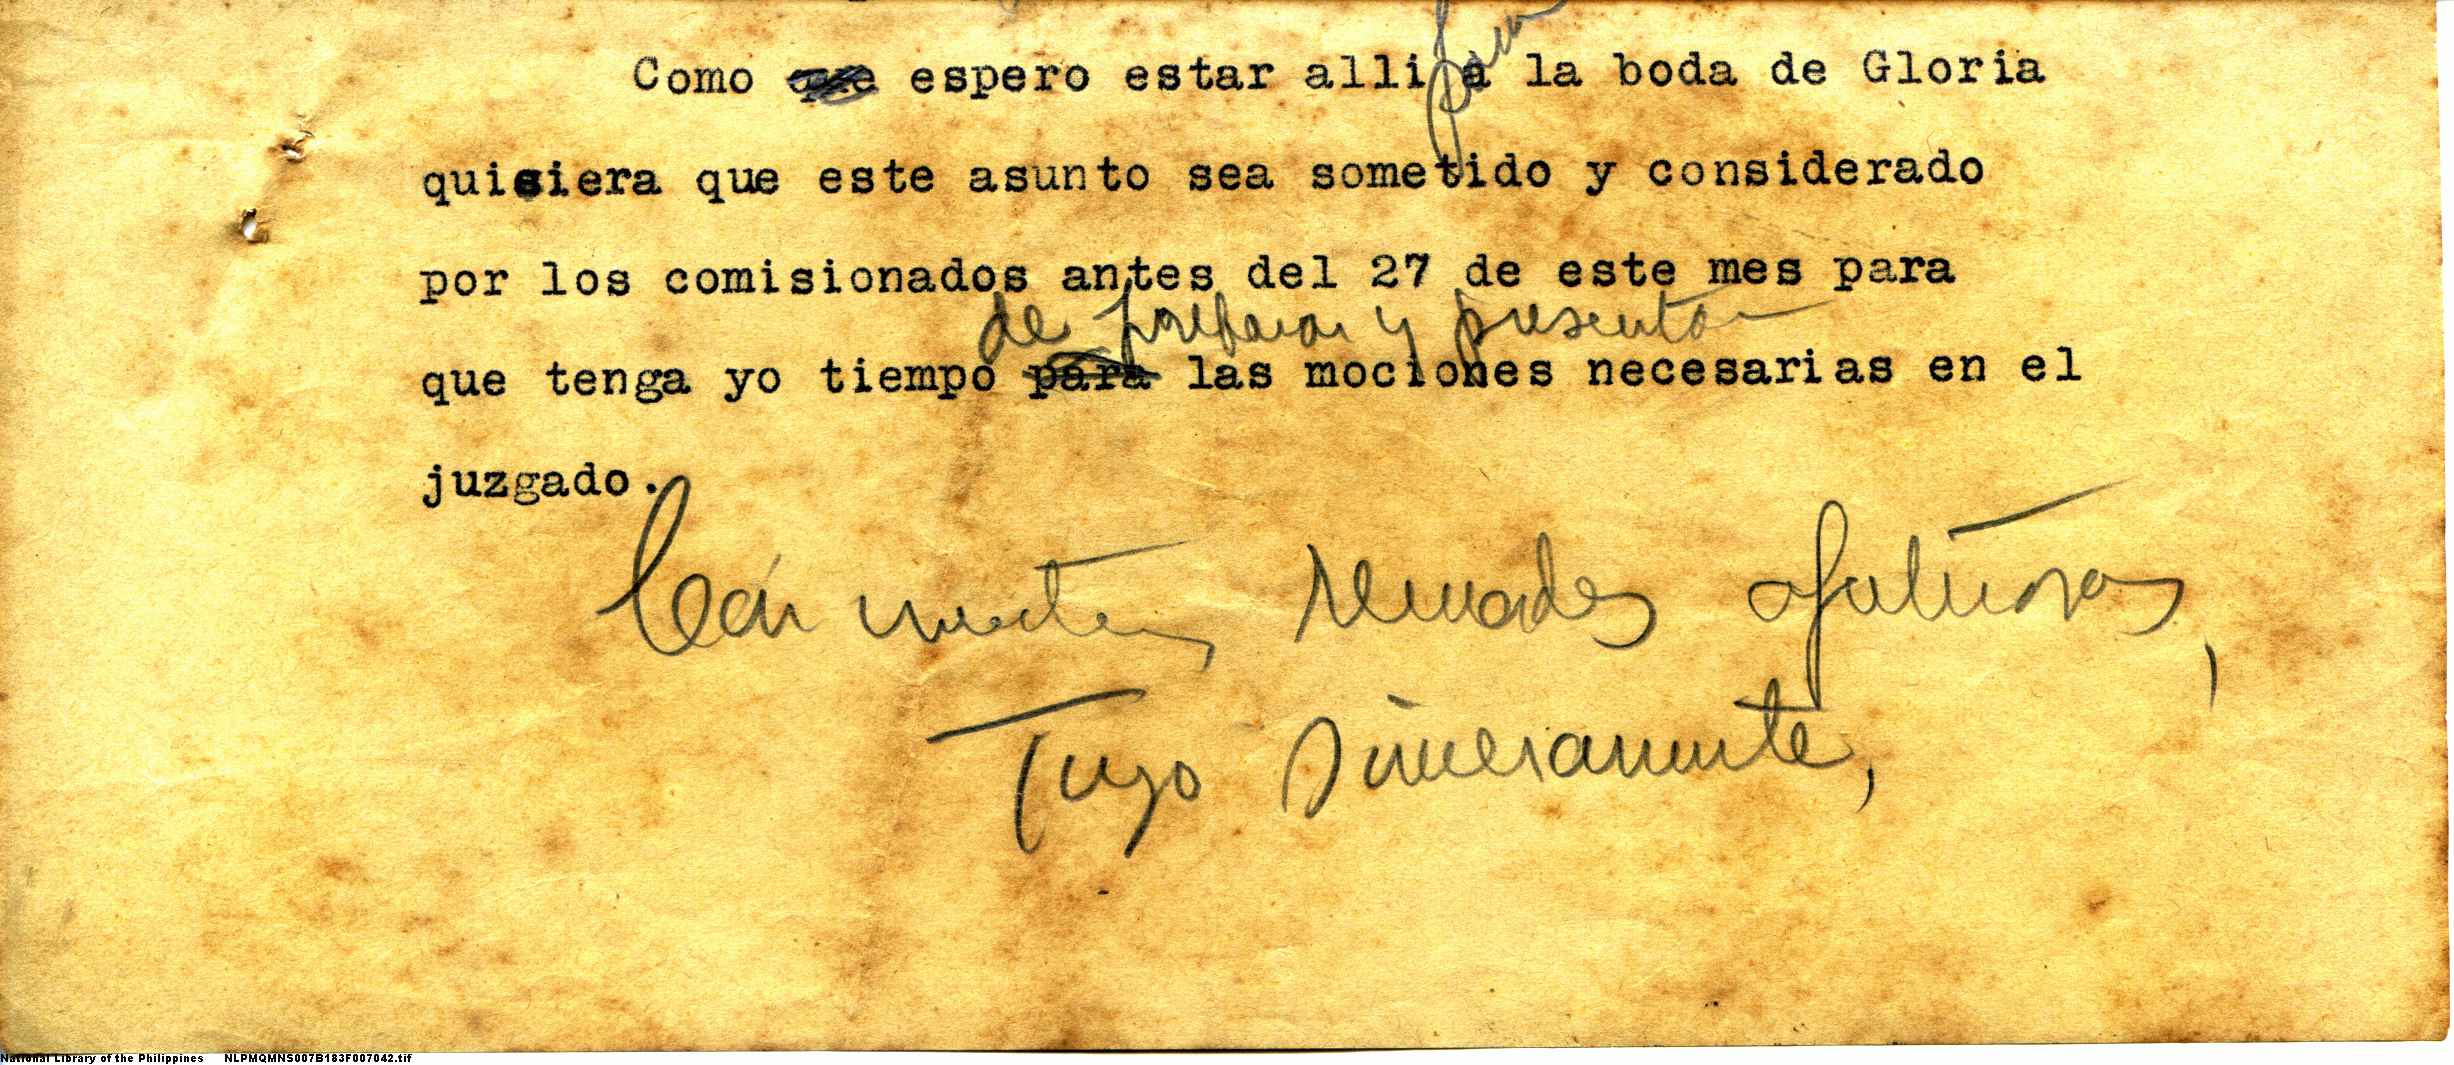 Como que espero estar alli para a la boda de Gloria
quisiera que este asunto sea sometido y considerado
por los comisionados antes del 27 de este mes para
de preparar y presentar
que tenga yo tiempo para las mociones necesarias en el
juzgado.
Con nuestros recuerdos afectuosos,
Tuyo sinceramente,
National Library of the Philippines NLPMQMNS007B183F007042.tif